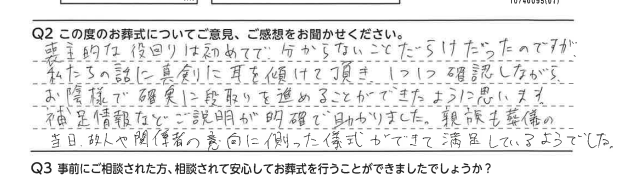 Q2 この度のお葬式についてご意見、ご感想をお聞かせください。
喪主的な役回りは初めてで分からないことだらけだったのですが、
私たちの話に真剣に耳を傾けて頂き 1つ1つ確認しながら
お陰様で確実に段取りを進めることができたように思います。
補足情報などご説明が明確で助かりました。親族も葬儀の
当日、故人や関係者の意向に則った儀式ができて満足しているようでした。
Q3 事前にご相談された方、相談されて安心してお葬式を行うことができましたでしょうか?